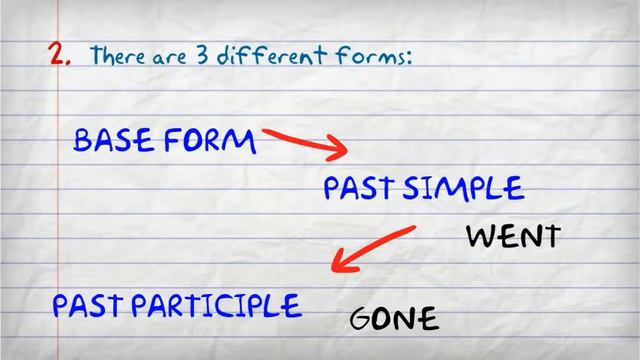 2. There are 3 different forms:
BASE FORM
PAST SIMPLE
WENT
PAST PARTICIPLE GONE